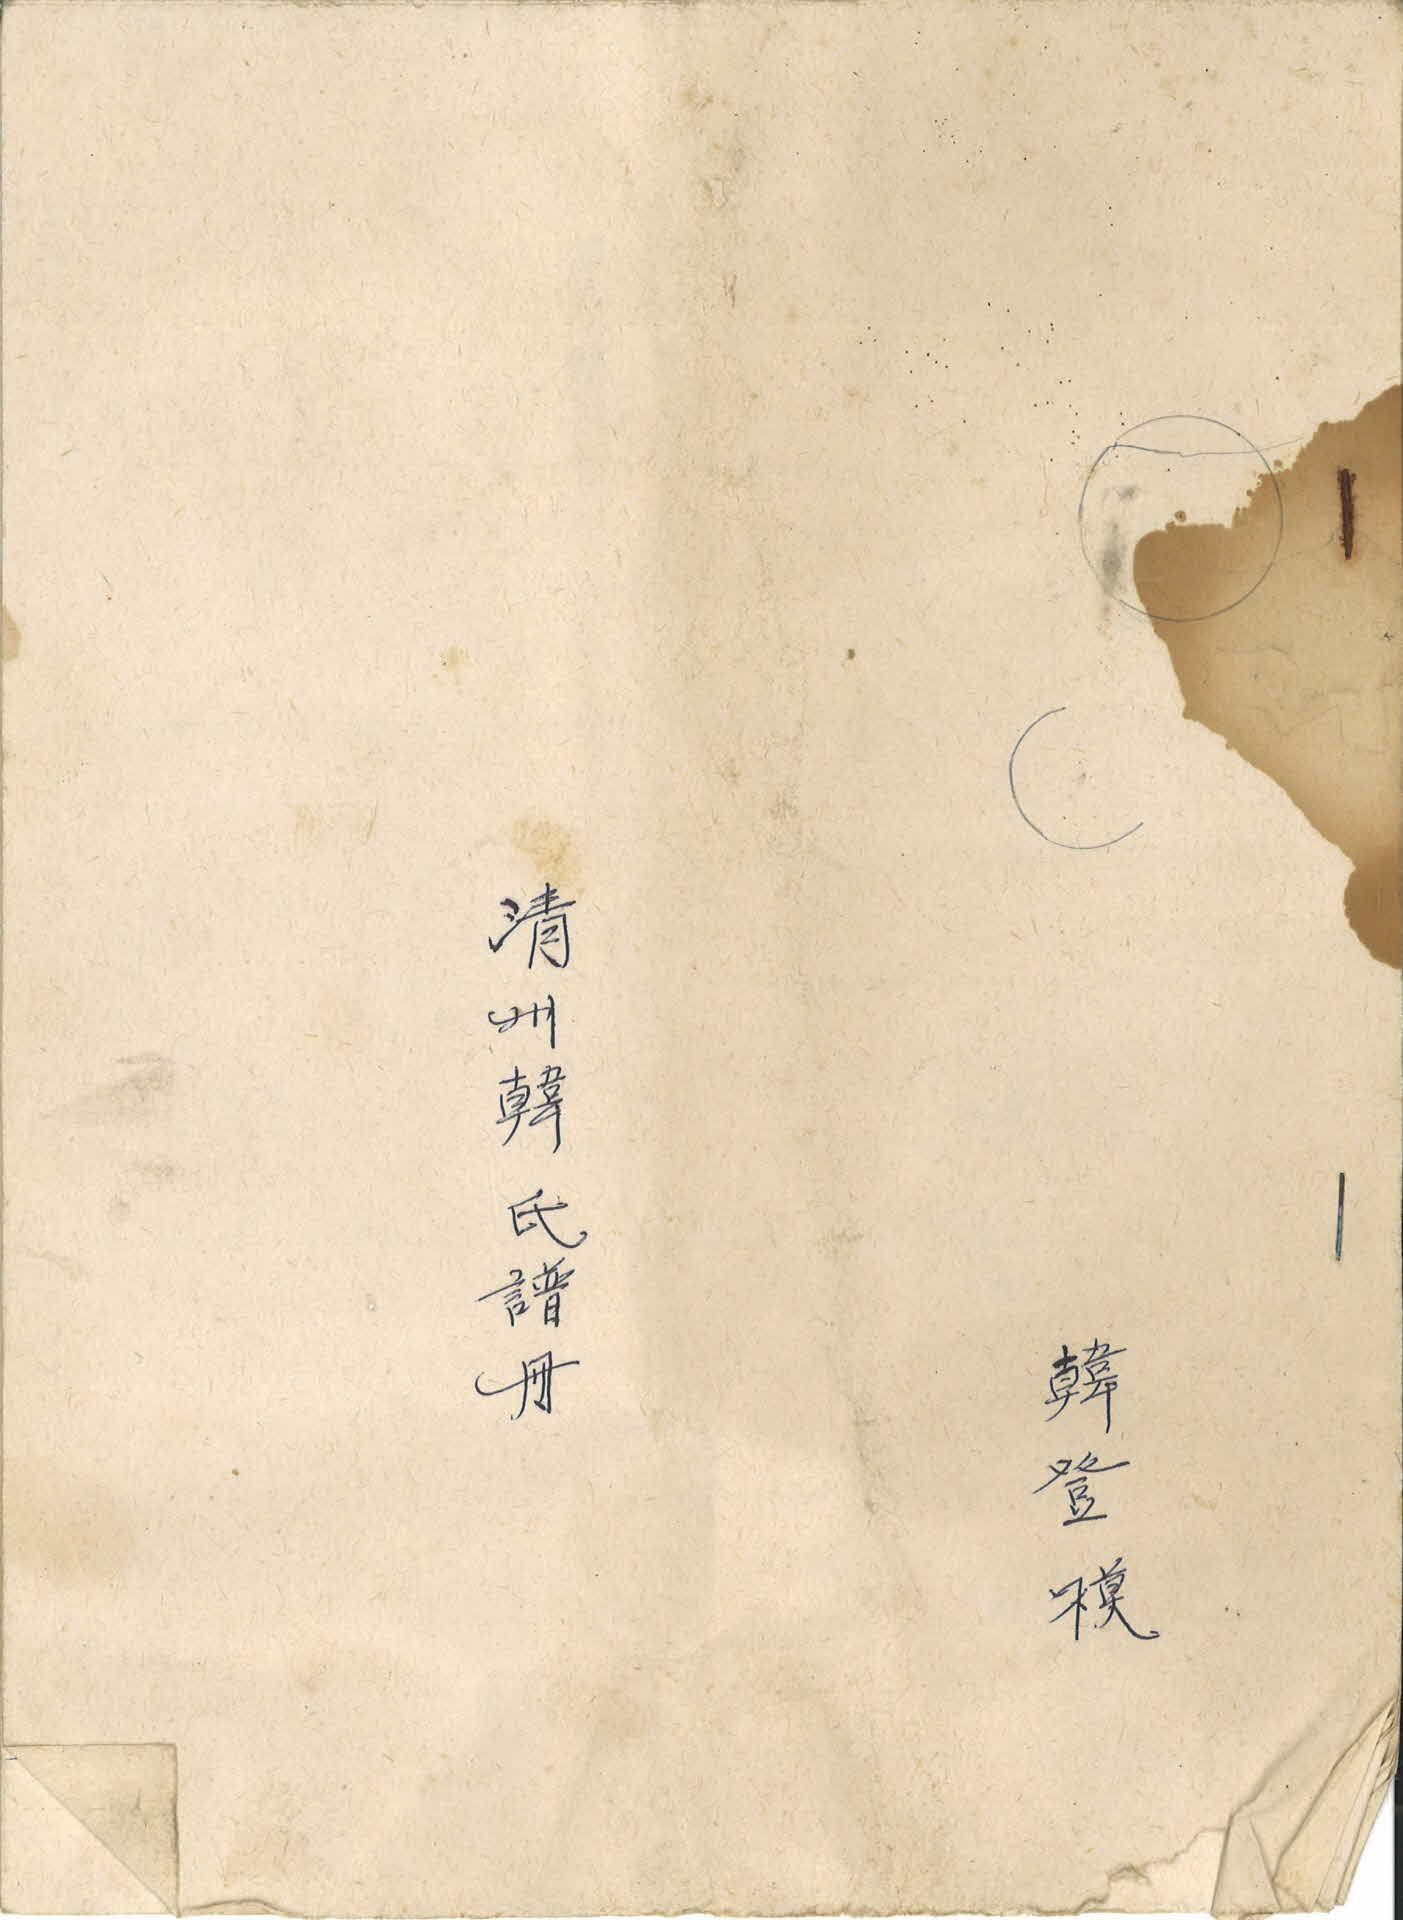 韓登模
清州韓氏譜冊